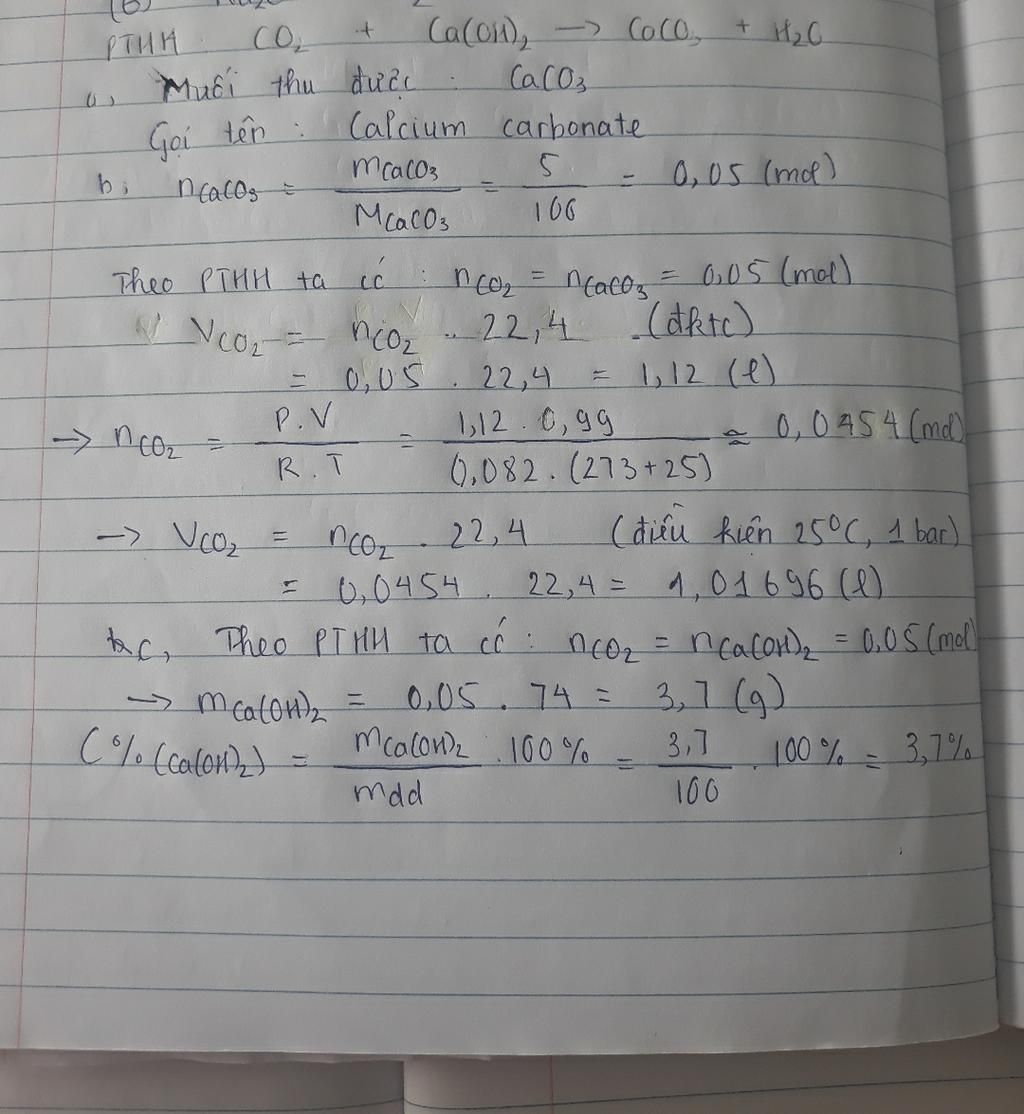 PTHH CO₂ + Ca(OH)₂ → CaCO₃ + H₂O
a, Muối thu được : CaCO₃
Gọi tên : Calcium carbonate
b, nCaCO₃ = mCaCO₃ / MCaCO₃ = 5 / 100 = 0,05 (mol)
Theo PTHH ta có : nCO₂ = nCaCO₃ = 0,05 (mol)
VCO₂ = nCO₂ . 22,4 (đktc)
= 0,05 . 22,4 = 1,12 (l)
→ nCO₂ = P.V / R.T = 1,12 . 0,99 / 0,082 . (273+25) ≃ 0,0454 (mol)
→ VCO₂ = nCO₂ . 22,4 (điều kiện 25°C, 1 bar)
= 0,0454 . 22,4 = 1,01696 (l)
c, Theo PTHH ta có : nCO₂ = nCa(OH)₂ = 0,05 (mol
→ mCa(OH)₂ = 0,05 . 74 = 3,7 (g)
C% (Ca(OH)₂) = mCa(OH)₂ / mdd . 100% = 3,7 / 100 . 100% = 3,7%